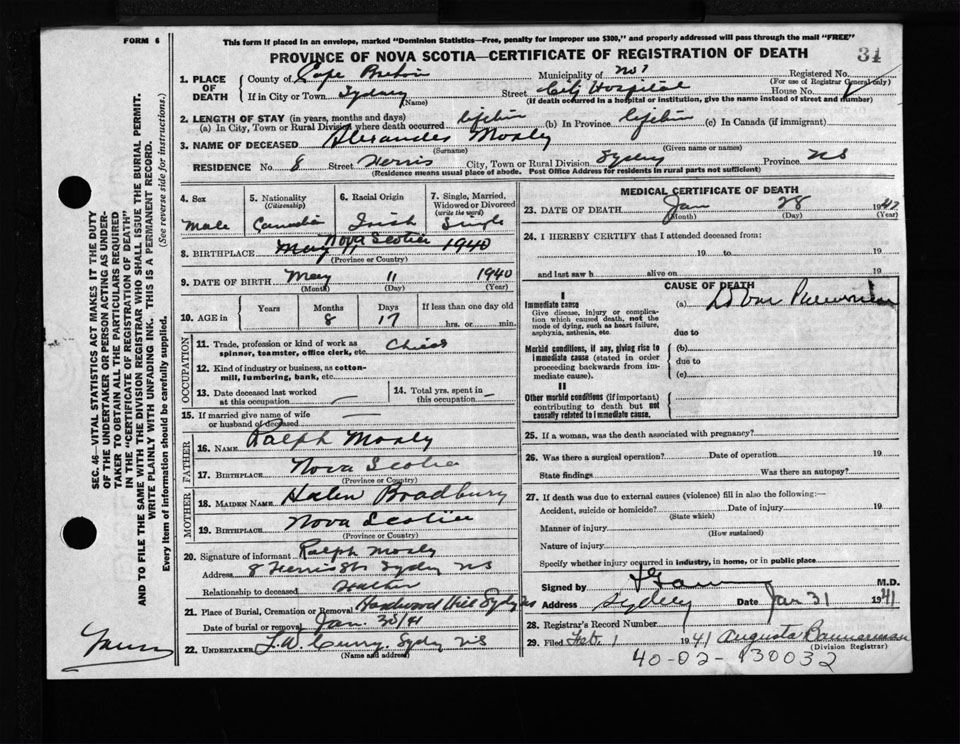 FORM 6
This form if placed in an envelope, marked "Dominion Statistics—Free, penalty for improper use $300," and properly addressed will pass through the mail "FREE"
PROVINCE OF NOVA SCOTIA—CERTIFICATE OF REGISTRATION OF DEATH
31
1. PLACE OF DEATH
County of Cape Breton Municipality of No 1 Registered No.
(For use of Registrar General only)
If in City or Town Sydney Street City Hospital House No.
(Name) (If death occurred in a hospital or institution, give the name instead of street and number)
2. LENGTH OF STAY (in years, months and days)
(a) In City, Town or Rural Division where death occurred lifetime (b) In Province lifetime (c) In Canada (if immigrant)
3. NAME OF DECEASED Alexander Mosly
(Surname) (Given name or names)
RESIDENCE No. 8 Street Ferris City, Town or Rural Division Sydney Province NS
(Residence means usual place of abode. Post Office Address for residents in rural parts not sufficient)
4. Sex Male
5. Nationality (Citizenship) Canadian
6. Racial Origin Irish
7. Single, Married, Widowed or Divorced (write the word) Single
8. BIRTHPLACE Nova Scotia May 11 1940
(Province or Country)
9. DATE OF BIRTH May 11 1940
(Month) (Day) (Year)
10. AGE in Years Months 8 Days 17 If less than one day old hrs. or min.
OCCUPATION
11. Trade, profession or kind of work as spinner, teamster, office clerk, etc. Child
12. Kind of industry or business, as cotton-mill, lumbering, bank, etc.
13. Date deceased last worked at this occupation
14. Total yrs. spent in this occupation
15. If married give name of wife or husband of deceased
FATHER
16. NAME Ralph Mosly
17. BIRTHPLACE Nova Scotia
(Province or Country)
MOTHER
18. MAIDEN NAME Helen Bradbury
19. BIRTHPLACE Nova Scotia
(Province or Country)
20. Signature of informant Ralph Mosly
Address 8 Ferris St Sydney NS
Relationship to deceased Father
21. Place of Burial, Cremation or Removal Hardwood Hill Sydney NS
Date of burial or removal Jan. 30/41
22. UNDERTAKER T.W. Curry. Sydney NS
(Name and address)
MEDICAL CERTIFICATE OF DEATH
23. DATE OF DEATH Jan 28 1942
(Month) (Day) (Year)
24. I HEREBY CERTIFY that I attended deceased from:
19 to 19
and last saw h alive on 19
CAUSE OF DEATH
I
Immediate cause
Give disease, injury or complication which caused death, not the mode of dying, such as heart failure, asphyxia, asthenia, etc.
(a) Lobar Pneumonia
due to
Morbid conditions, if any, giving rise to immediate cause (stated in order proceeding backwards from immediate cause).
(b)
due to
(c)
II
Other morbid conditions (if important) contributing to death but not causally related to immediate cause.
25. If a woman, was the death associated with pregnancy?
26. Was there a surgical operation? Date of operation 19
State findings Was there an autopsy?
27. If death was due to external causes (violence) fill in also the following:—
Accident, suicide or homicide? Date of injury 19
(State which)
Manner of injury
(How sustained)
Nature of injury
Specify whether injury occurred in industry, in home, or in public place
Signed by M.D.
Address Sydney Date Jan 31 1941
28. Registrar's Record Number
29. Filed Feb 1 1941 Augusta Bannerman
(Division Registrar)
40-02-130032
SEC. 46—VITAL STATISTICS ACT MAKES IT THE DUTY
OF THE UNDERTAKER OR PERSON ACTING AS UNDERTAKER
TO OBTAIN ALL THE PARTICULARS REQUIRED
IN THE "CERTIFICATE OF REGISTRATION OF DEATH"
AND TO FILE THE SAME WITH THE DIVISION REGISTRAR WHO SHALL ISSUE THE BURIAL PERMIT.
WRITE PLAINLY WITH UNFADING INK. THIS IS A PERMANENT RECORD.
Every item of information should be carefully supplied. (See reverse side for instructions.)